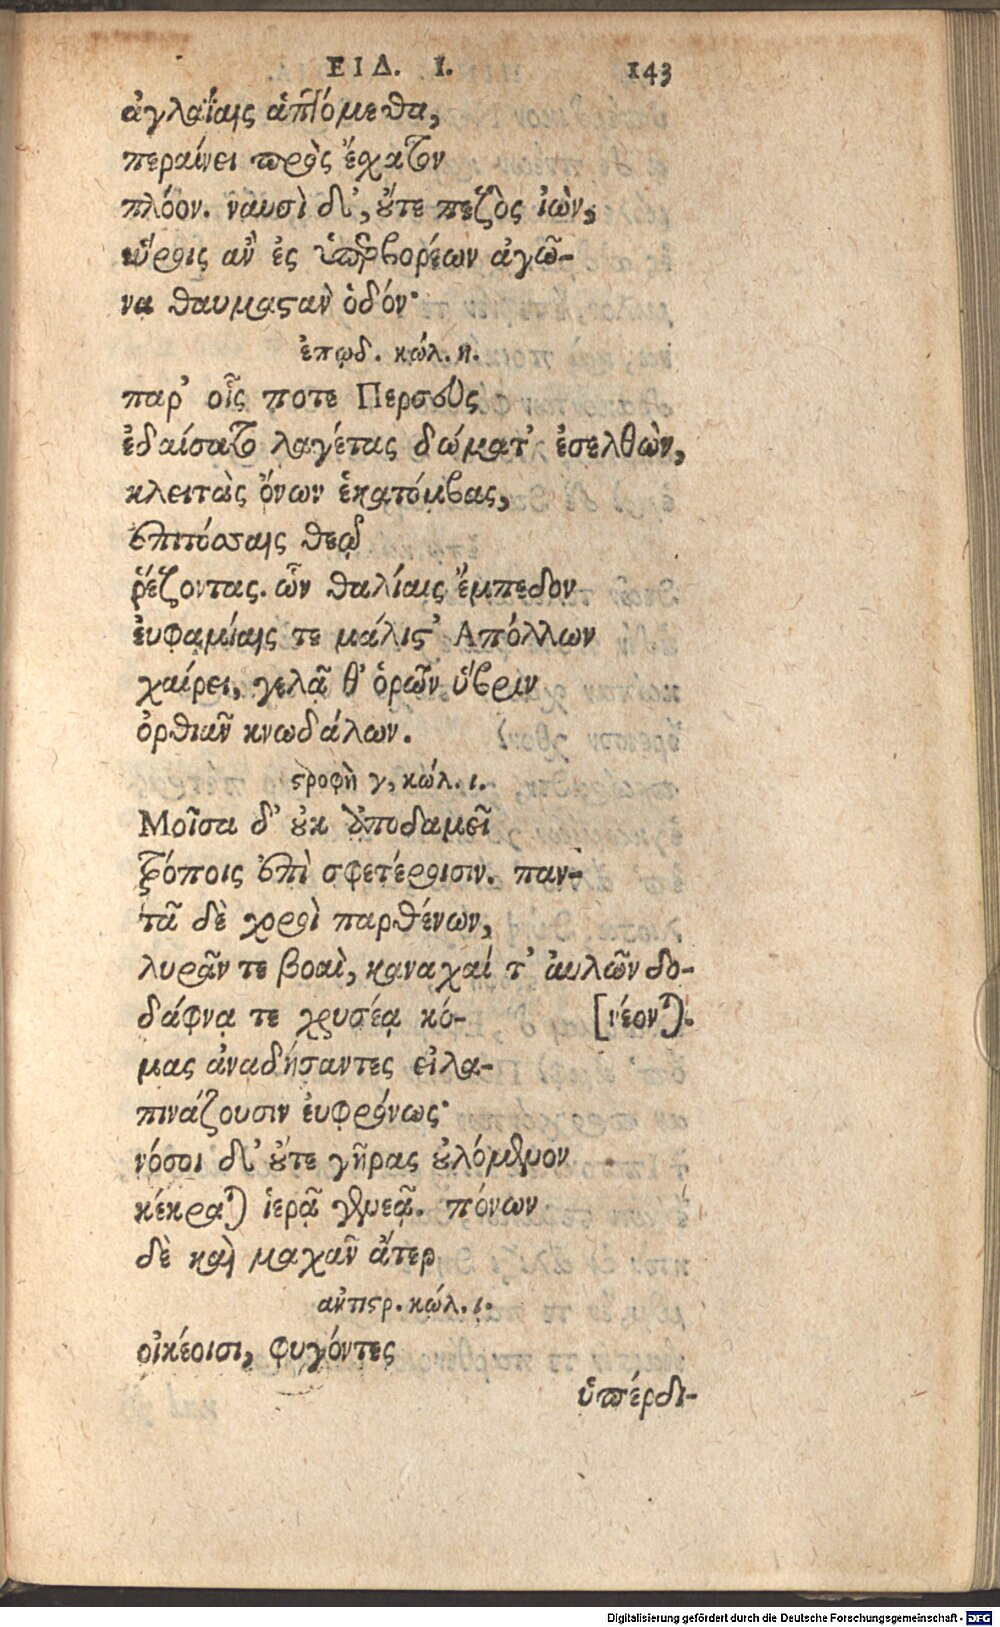 ΕΙΔ. Ι. 143
ἀγλαΐαις ἁπτόμεθα,
περαίνει πρὸς ἔχατον
πλόον. ναυσὶ δ', οὔτε πεζὸς ἰὼν,
εὕροις ἂν ἐς ὑπερβορέων ἀγῶ-
να θαυμαστὰν ὁδόν·
ἐπῳδ. κώλ. η.
παρ' οἷς ποτε Περσεὺς
ἐδαίσατο λαγέτας δώματ' ἐσελθὼν,
κλειτὰς ὄνων ἑκατόμβας,
ἐπιτόσσαις θεῷ
ῥέζοντας. ὧν θαλίαις ἔμπεδον
εὐφαμίαις τε μάλιστ' Ἀπόλλων
χαίρει, γελᾷ θ' ὁρῶν ὕβριν
ὀρθιᾶν κνωδάλων.
στροφὴ γ, κώλ. ι.
Μοῖσα δ' οὐκ ἀποδαμεῖ
τρόποις ἐπὶ σφετέροισιν. παν-
τᾶ δὲ χοροὶ παρθένων,
λυρᾶν τε βοαὶ, καναχαί τ' αὐλῶν δο-
δάφνᾳ τε χρυσέᾳ κό- [νέονται.
μας ἀναδήσαντες εἰλα-
πινάζουσιν εὐφρόνως·
νόσοι δ' οὔτε γῆρας οὐλόμενον
κέκραται ἱερᾷ γενεᾷ. πόνων
δὲ καὶ μαχᾶν ἄτερ
ἀντιστρ. κώλ. ι.
οἰκέοισι, φυγόντες
ὑπέρδι-
Digitalisierung gefördert durch die Deutsche Forschungsgemeinschaft - DFG